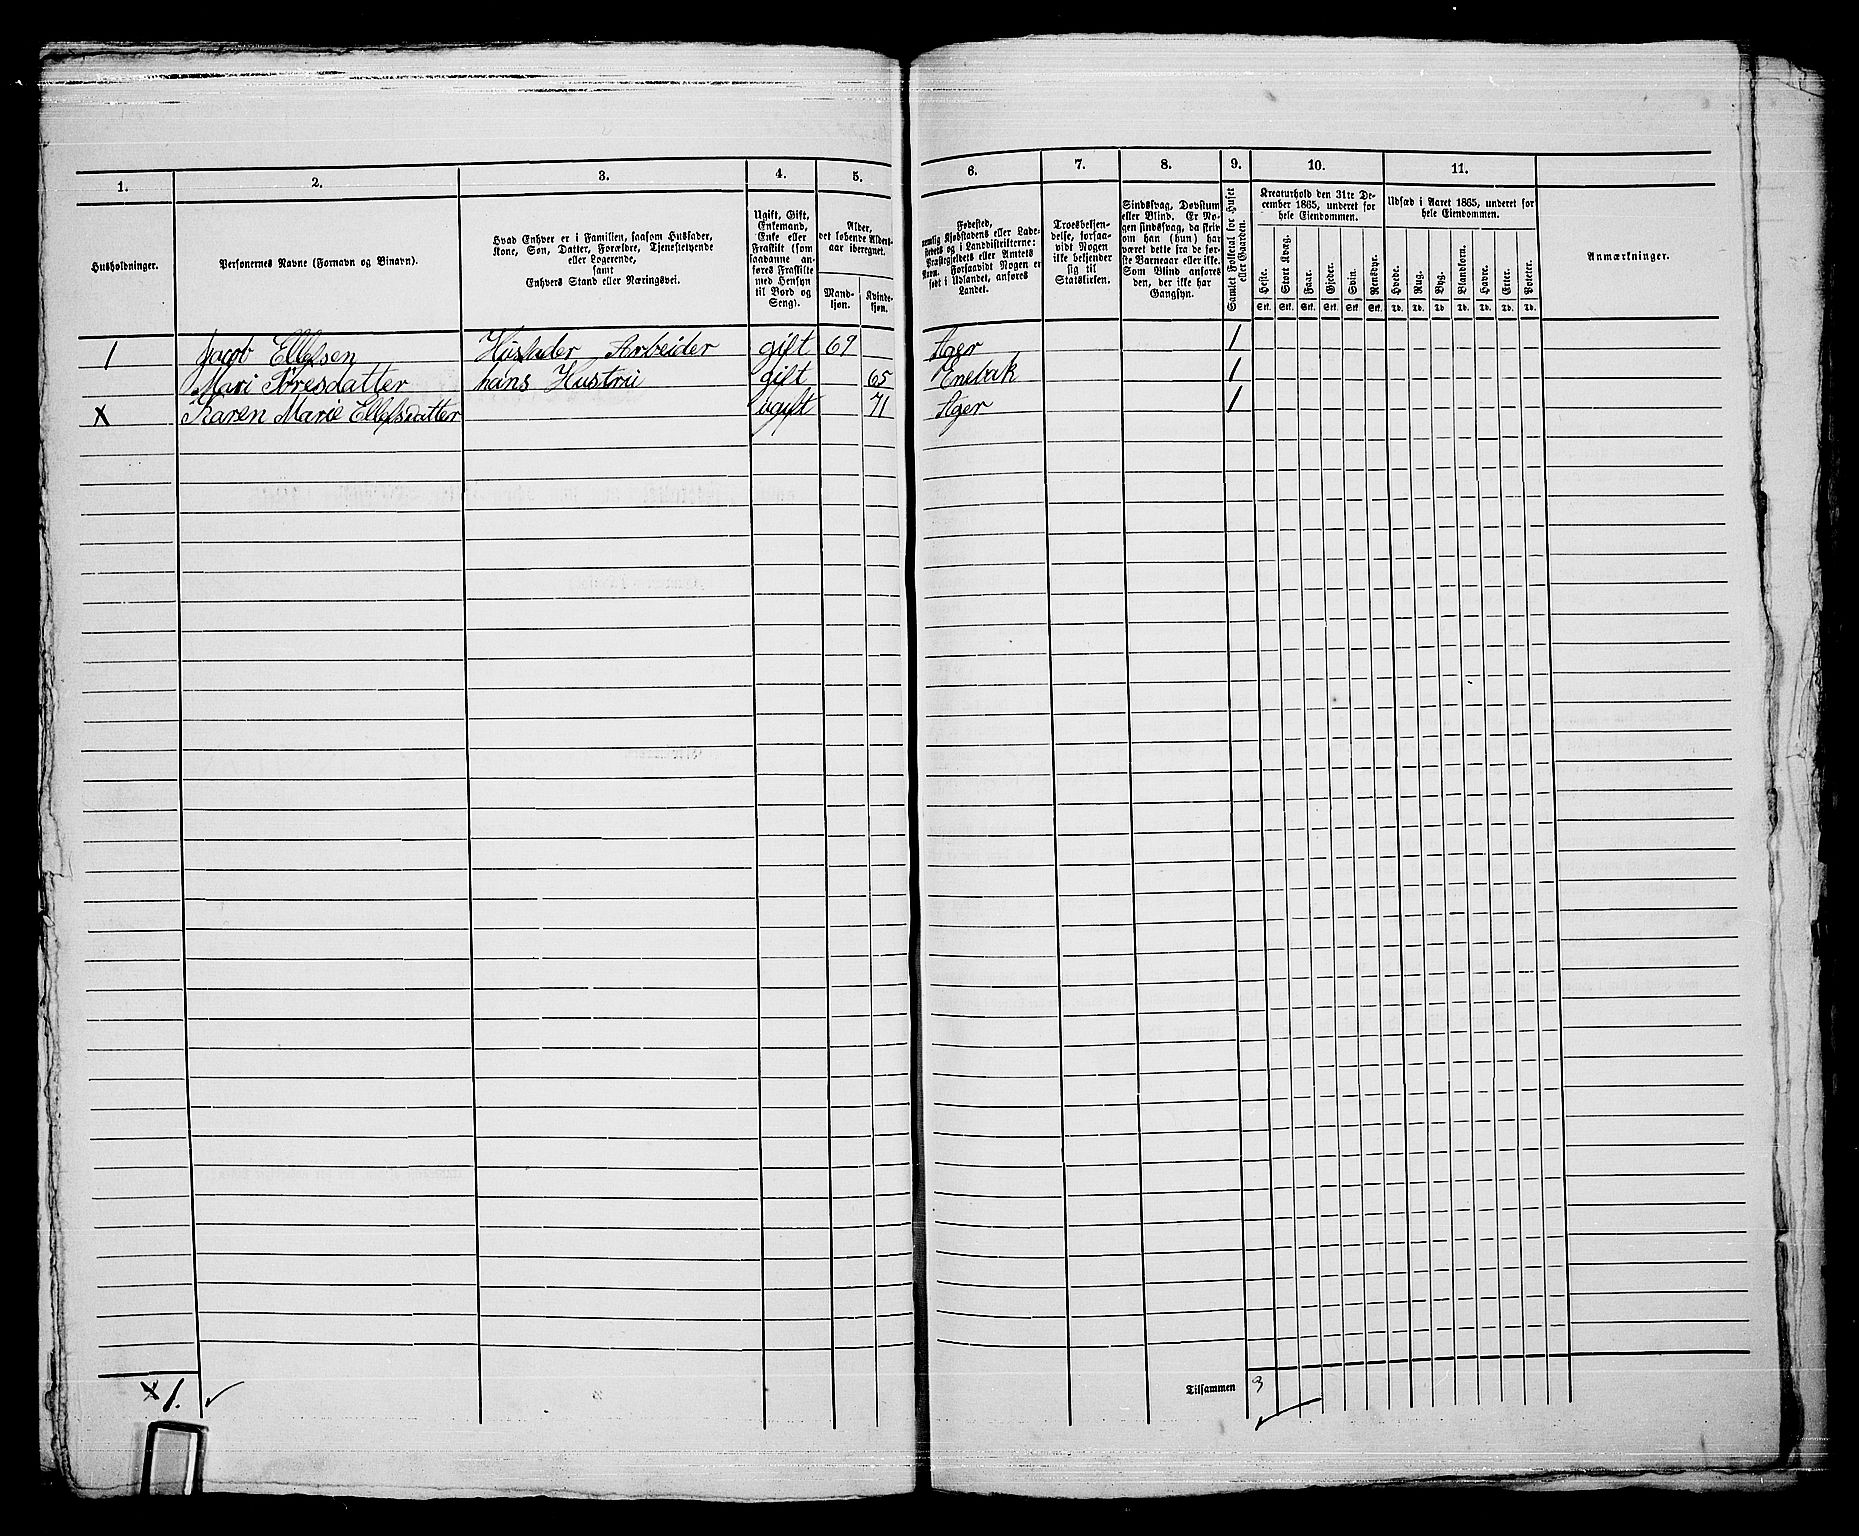 1. 2. 3. 4. 5. 6. 7. 8. 9. 10. 11.
Husholdninger.
Personernes Navne (Fornavn og Binavn).
Hvad Enhver er i Familien, saasom Husfader,
Kone, Søn, Datter, Forældre, Tjenestetyende
eller Logerende,
samt
Enhvers Stand eller Næringsvei.
Ugift, Gift,
Enkemand,
Enke eller
Fraskilt (som
saadanne an-
føres Fraskilte
med Hensyn
til Bord og
Seng).
Alder,
det løbende Alders-
aar iberegnet.
Mand-
kjøn.
Kvinde-
kjøn.
Fødested,
nemlig Kjøbstadens eller Lade-
stedets og i Landdistrikterne:
Præstegjeldets eller Amtets
Navn. Forsaavidt Nogen er
født i Udlandet, anføres
Landet.
Troesbekjen-
delse, forsaa-
vidt Nogen
ikke bekjender
sig til
Statskirken.
Sindssvag, Døvstum
eller Blind. Er No-
gen sindssvag, da skriv
om han (hun) har
været dette fra de før-
ste Barneaar eller ikke.
Som Blind anføres
den, der ikke har
Gangsyn.
Samlet Folketal for Huset
eller Gaarden.
Kreaturhold den 31te De-
cember 1865, underet for
hele Eiendommen.
Heste. Stort Kvæg. Faar. Gjeder. Svin. Rensdyr.
Stk. Stk. Stk. Stk. Stk. Stk.
Udsæd i Aaret 1865, underet for
hele Eiendommen.
Hvede. Rug. Byg. Blandkorn. Havre. Erter. Poteter.
Td. Td. Td Td. Td. Td. Td.
Anmærkninger.
1 Jacob Ellefsen Husfader Arbeider gift 69 Ager 1
Mari Toresdatter hans Hustru gift 65 Enebak 1
x Karen Marie Ellefsdatter ugift 71 Ager 1
x 1.
Tilsammen 3